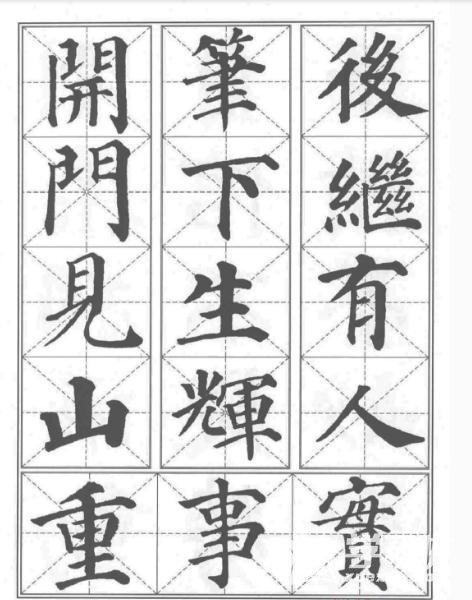 後繼有人
筆下生輝
開門見山
重事實